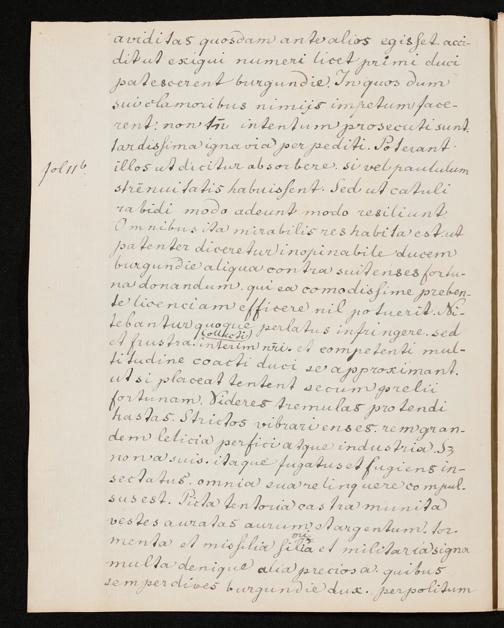 aviditas quosdam ante alios egisset. acci-
dit ut exigui numeri licet primi duci
patescerent burgundie. In quos dum
sui clamoribus nimijs impetum face-
rent: non tn intentum prosecuti sunt.
tardissima ignavia perpediti. Poterant
fol 11b.
illos ut dicitur absorbere. si vel paululum
strenuitatis habuissent. Sed ut catuli
rabidi modo adeunt modo resiliunt
Omnibus ita mirabilis res habita est. ut
patenter diceretur inopinabile ducem
burgundie aliqua contra suitenses fortu-
na donandum. qui ea comodissime preben-
te licenciam efficere nil potuerit. Ni-
tebantur quoque perlatus infringere. sed
(collecti)
et frustra. interim nri. et competenti mul-
titudine coacti duci se approximant.
ut si placeat tentent secum prelii
fortunam. Videres tremulas protendi
hastas. Strictos vibrari enses. rem gran-
dem leticia perfici atque industria. Sz
non a suis. itaque fugatus et fugiens in-
sectatus. omnia sua relinquere compul-
sus est. Picta tentoria castra munita
vestes auratas aurum et argentum. tor-
menta et missilia et militaria signa
multa denique alia preciosa. quibus
semper dives burgundie dux. perpolitum